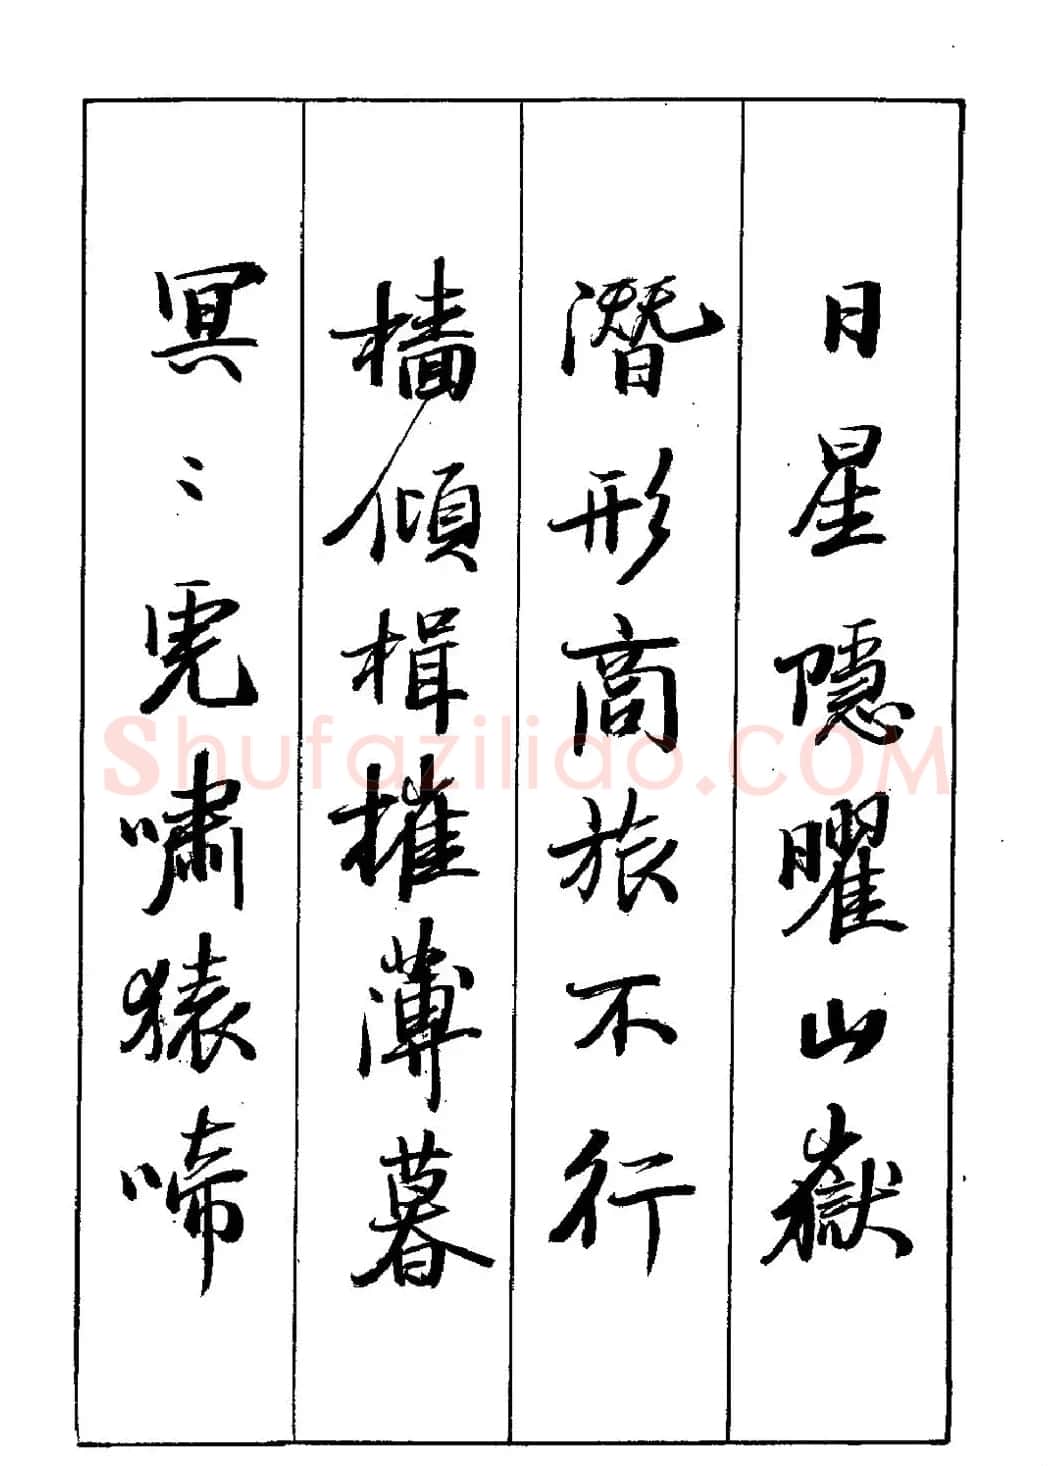 日星隱曜山嶽
潛形商旅不行
檣傾楫摧薄暮
冥〻虎嘯猿啼
Shufaziliao.COM